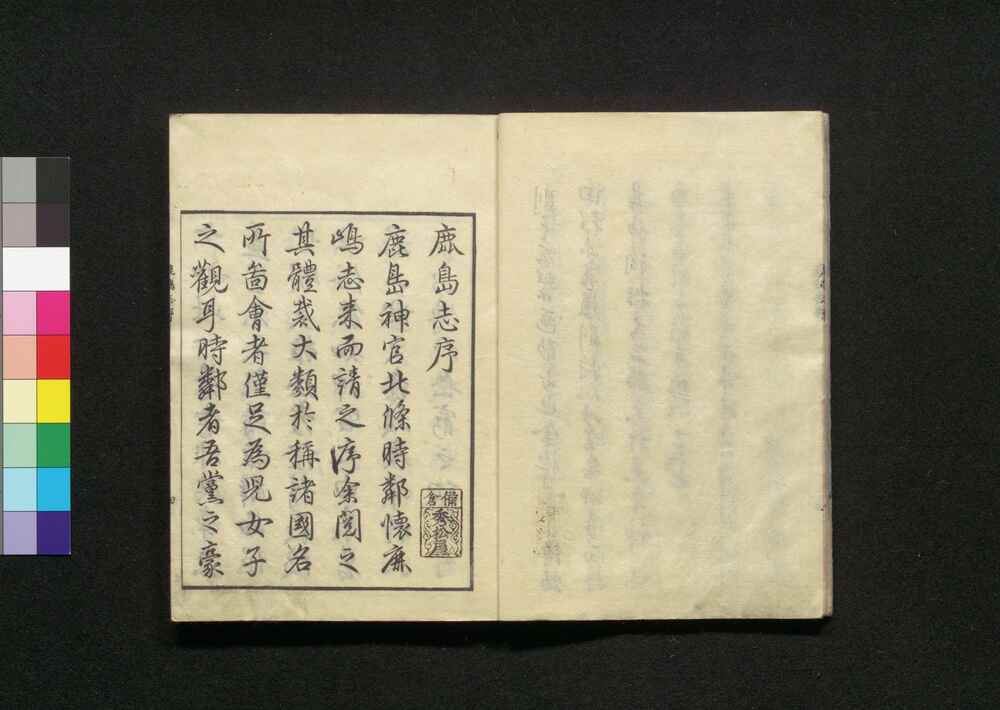 鹿島志序
鹿島神官北條時鄰懷鹿
嶋志来而請之序余閲之
其體裁大類於稱諸國名
所啚會者僅足為児女子
之觀耳時鄰者吾黨之豪
備倉
秀松屋